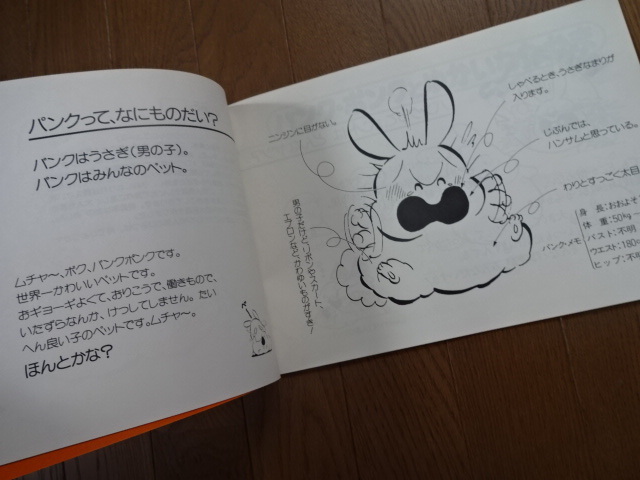 パンクって、なにものだい？
パンクはうさぎ（男の子）。
パンクはみんなのペット。
ムチャ〜、ボク、パンクポンクです。
世界一かわいいペットです。
おギョーギよくて、おりこうで、働きもので、
いたずらなんか、けっしてしません。たい
へん良い子のペットです。ムチャ〜。
ほんとかな？
ニンジンに目がない。
男の子だけど、リボンやスカート、
エプロンなど、かわいいものがすき！
しゃべるとき、うさぎなまりが
入ります。
じぶんでは、
ハンサムと思っている。
わりとすっごく太目
パンク・メモ
身 長：おおよそ
体 重：50㎏
バスト：不明
ウエスト：180
ヒップ：不明